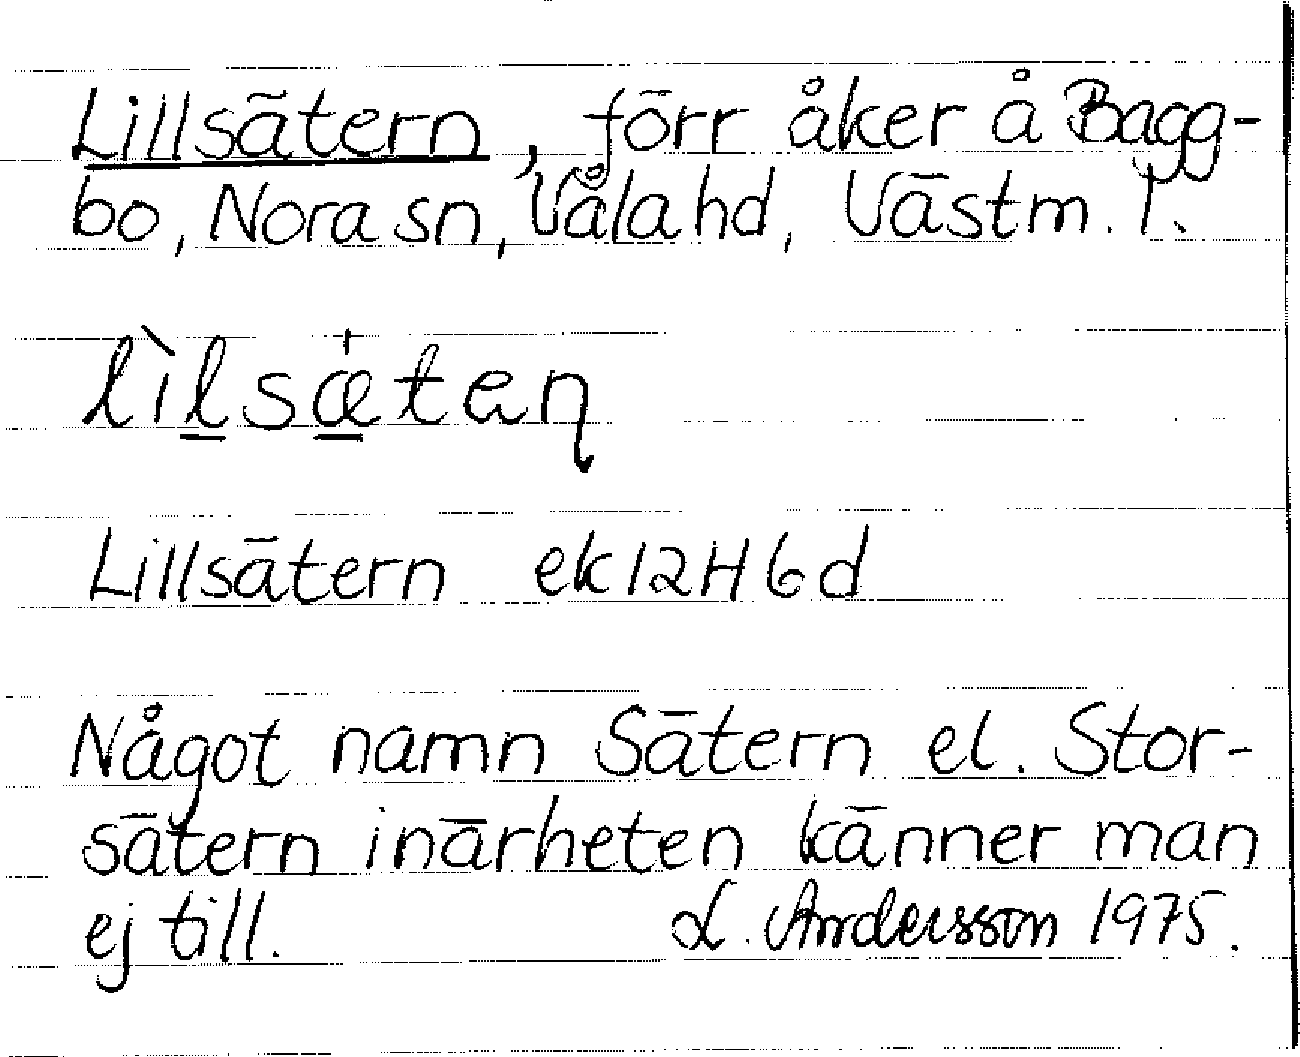 Lillsätern, förr åker å Bagg-
bo, Nora sn, Våla hd, Västm. l.
lìlsæ̍teɳ
Lillsätern ek 12H6d
Något namn Sätern el. Stor-
sätern i närheten känner man
ej till. L. Andersson 1975.